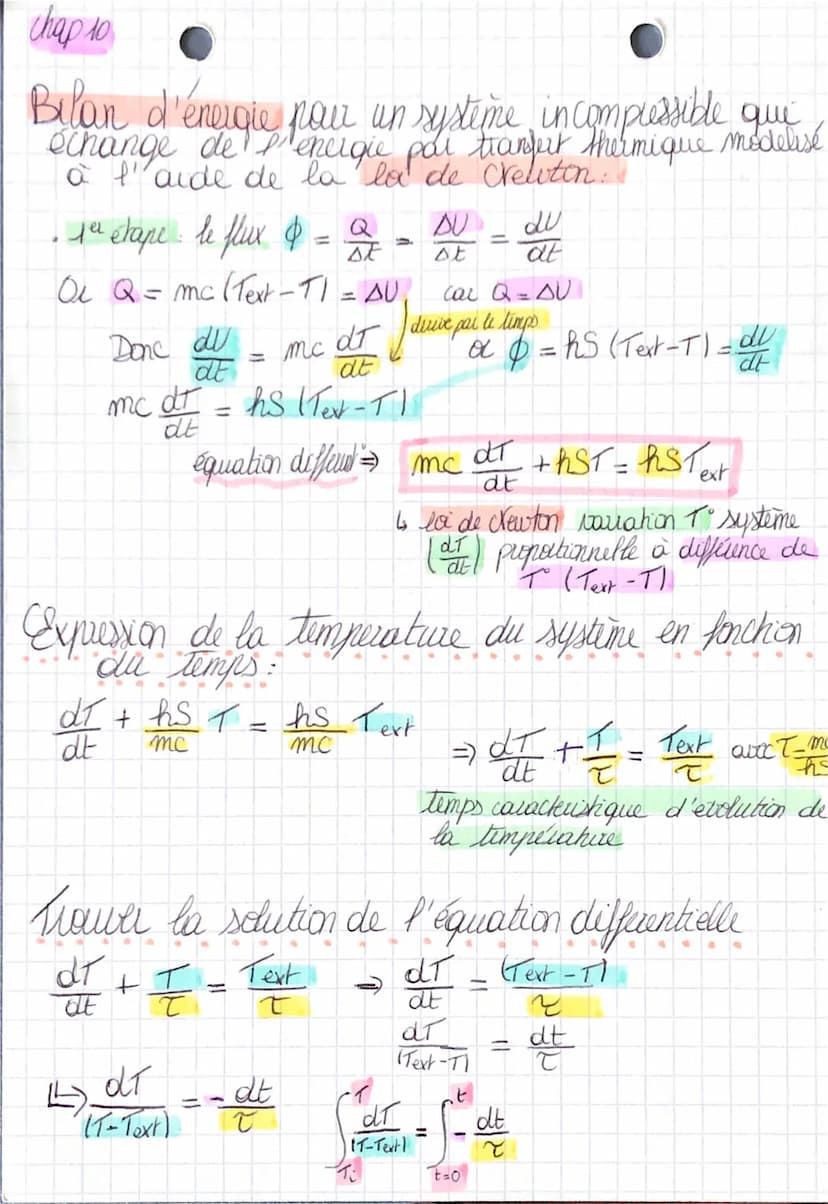 Chap 10
Bilan d'énergie pour un système incompressible qui
échange de l'énergie par transfert thermique modélisé
à l'aide de la loi de Newton :
. 1er étape : le flux ϕ = Q/Δt = ΔU/Δt = dU/dt
Or Q = mc (Text - T) = ΔU car Q = ΔU
derive par le temps
Donc dU/dt = mc dT/dt or ϕ = hS (Text - T) = dU/dt
mc dT/dt = hS (Text - T)
équation différent° ⇒ mc dT/dt + hST = hSText
↳ loi de Newton variation T° système
(dT/dt) proportionnelle à différence de
T° (Text - T)
Expression de la température du système en fonction
du temps :
dT/dt + hS/mc T = hS/mc Text
⇒ dT/dt + T/τ = Text/τ avec τ = mc/hS
temps caractéristique d'évolution de
la température
Trouver la solution de l'équation differentielle
dT/dt + T/τ = Text/τ ⇒ dT/dt = (Text - T)/τ
dT/(Text - T) = dt/τ
↳ dT/(T - Text) = - dt/τ ∫_Ti^T dT/(T - Text) = ∫_t=0^t - dt/τ